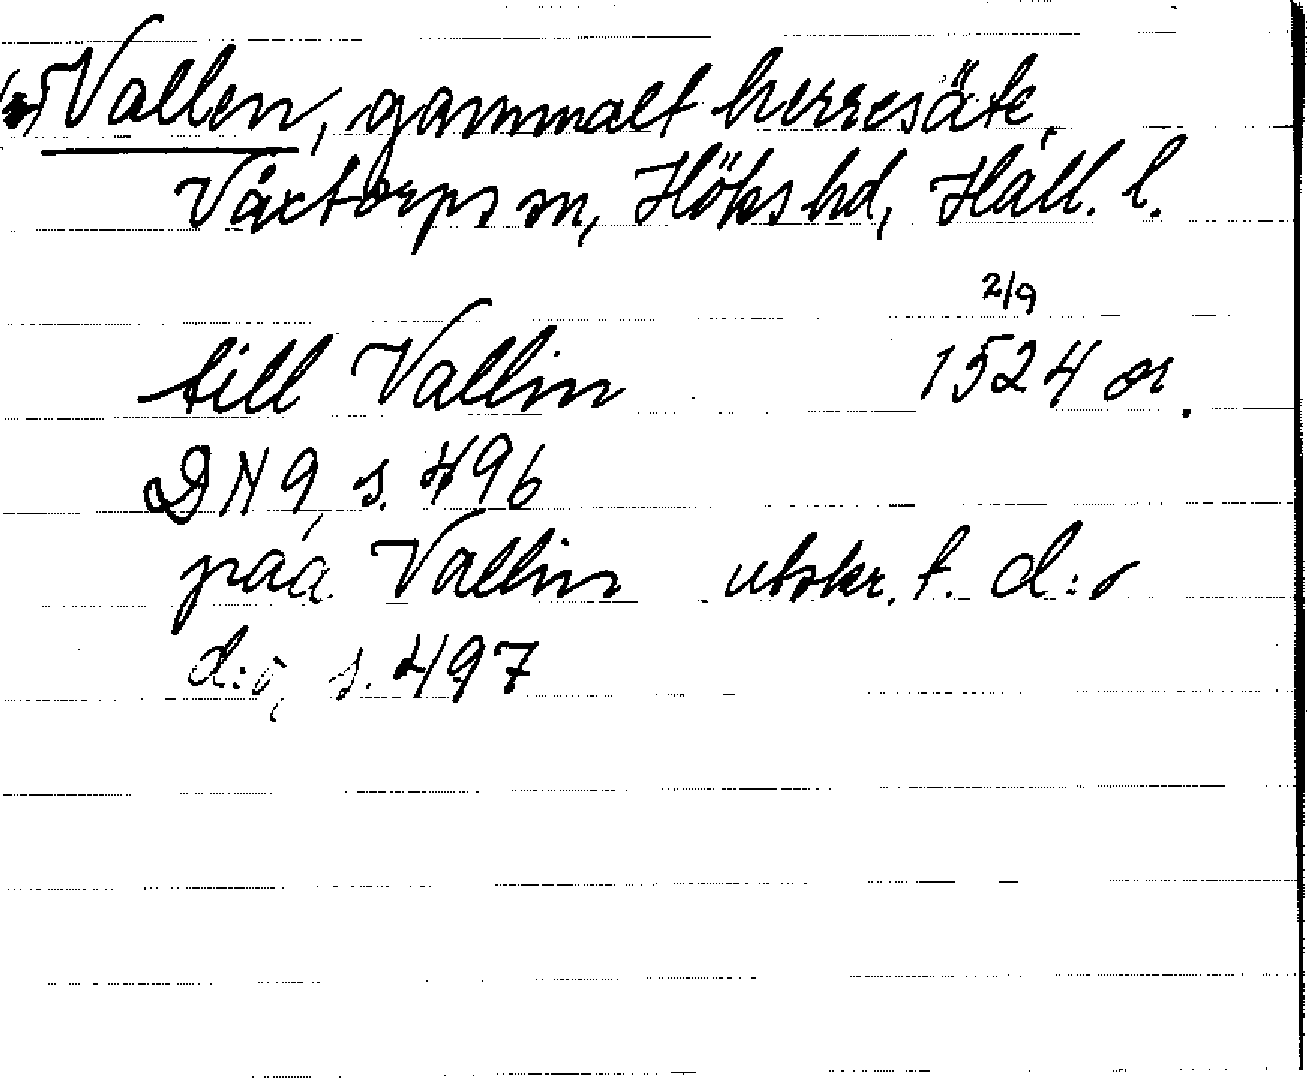 Vallen, gammalt herresäte,
Våxtorps sn, Höks hd, Hall. l.
2/9
till Vallin 1524 or.
DN 9, s. 496
paa Vallin utskr. f. d:o
d:o, s. 497